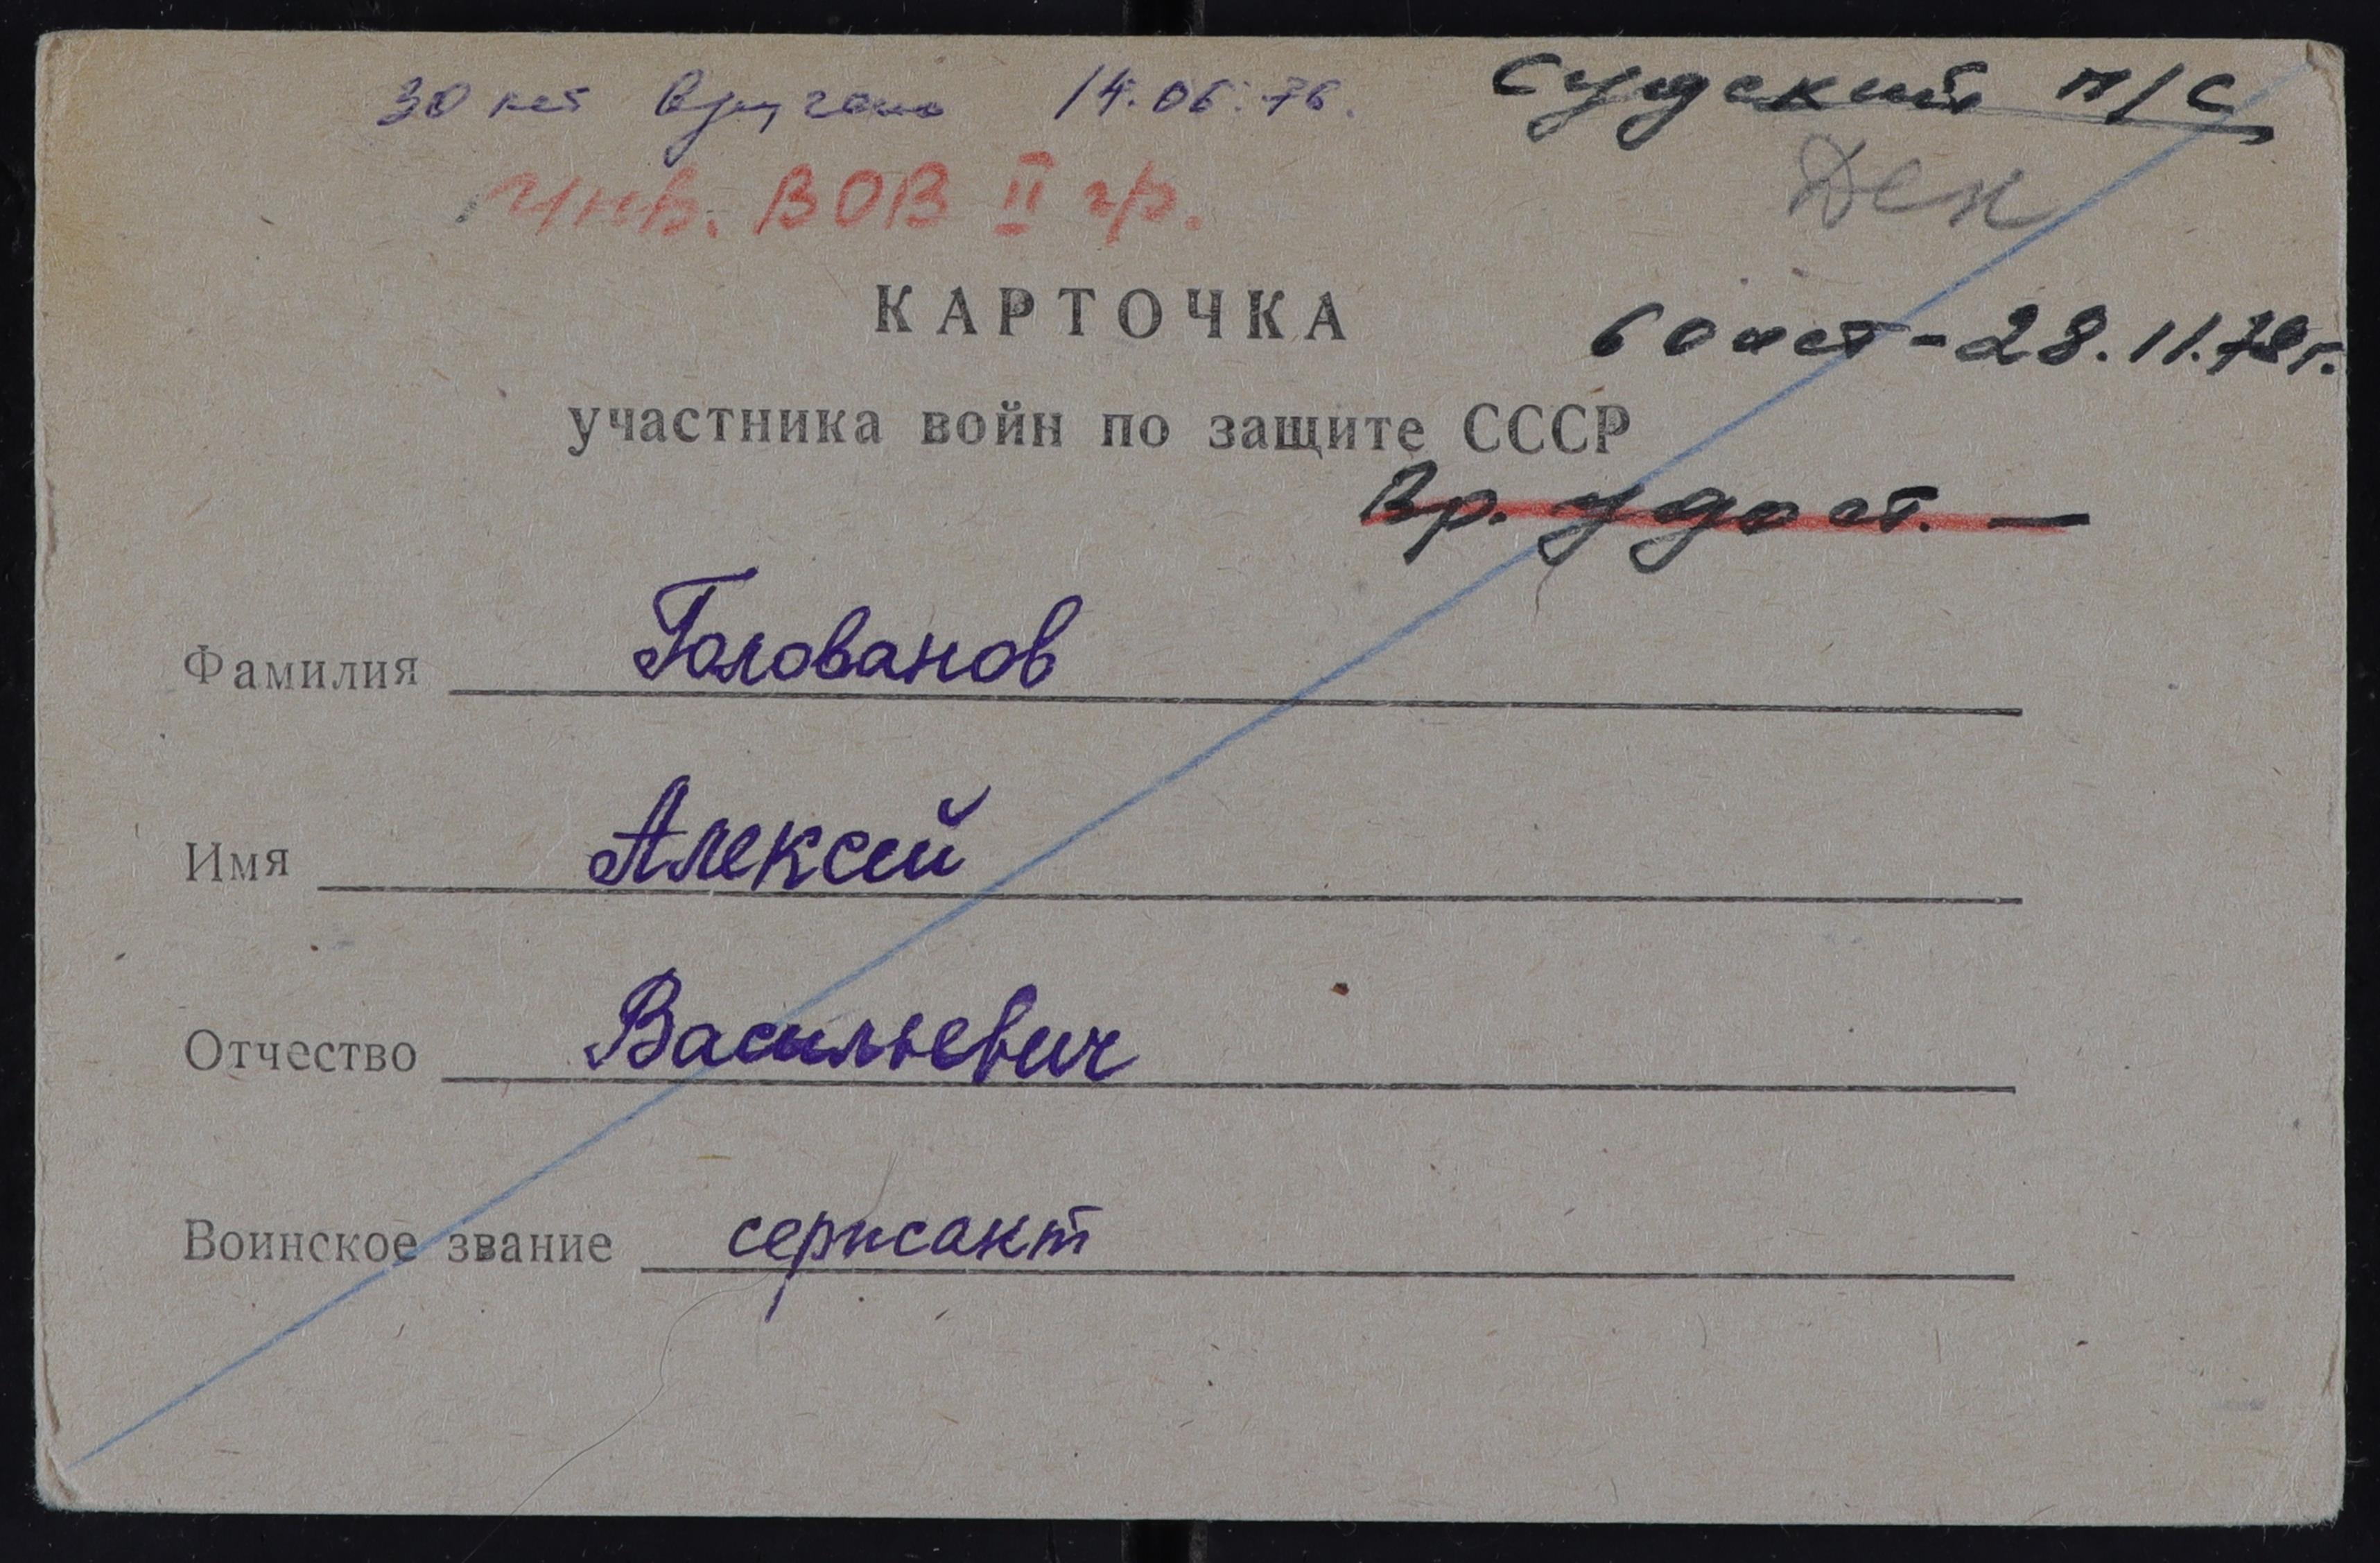 30 лет вручено 14.06.76. Судский п/с
инв. ВОВ II гр. Ден
КАРТОЧКА
60 лет - 28.11.78 г.
участника войн по защите СССР
Вр. удост. —
Фамилия Голованов
Имя Алексей
Отчество Васильевич
Воинское звание сержант